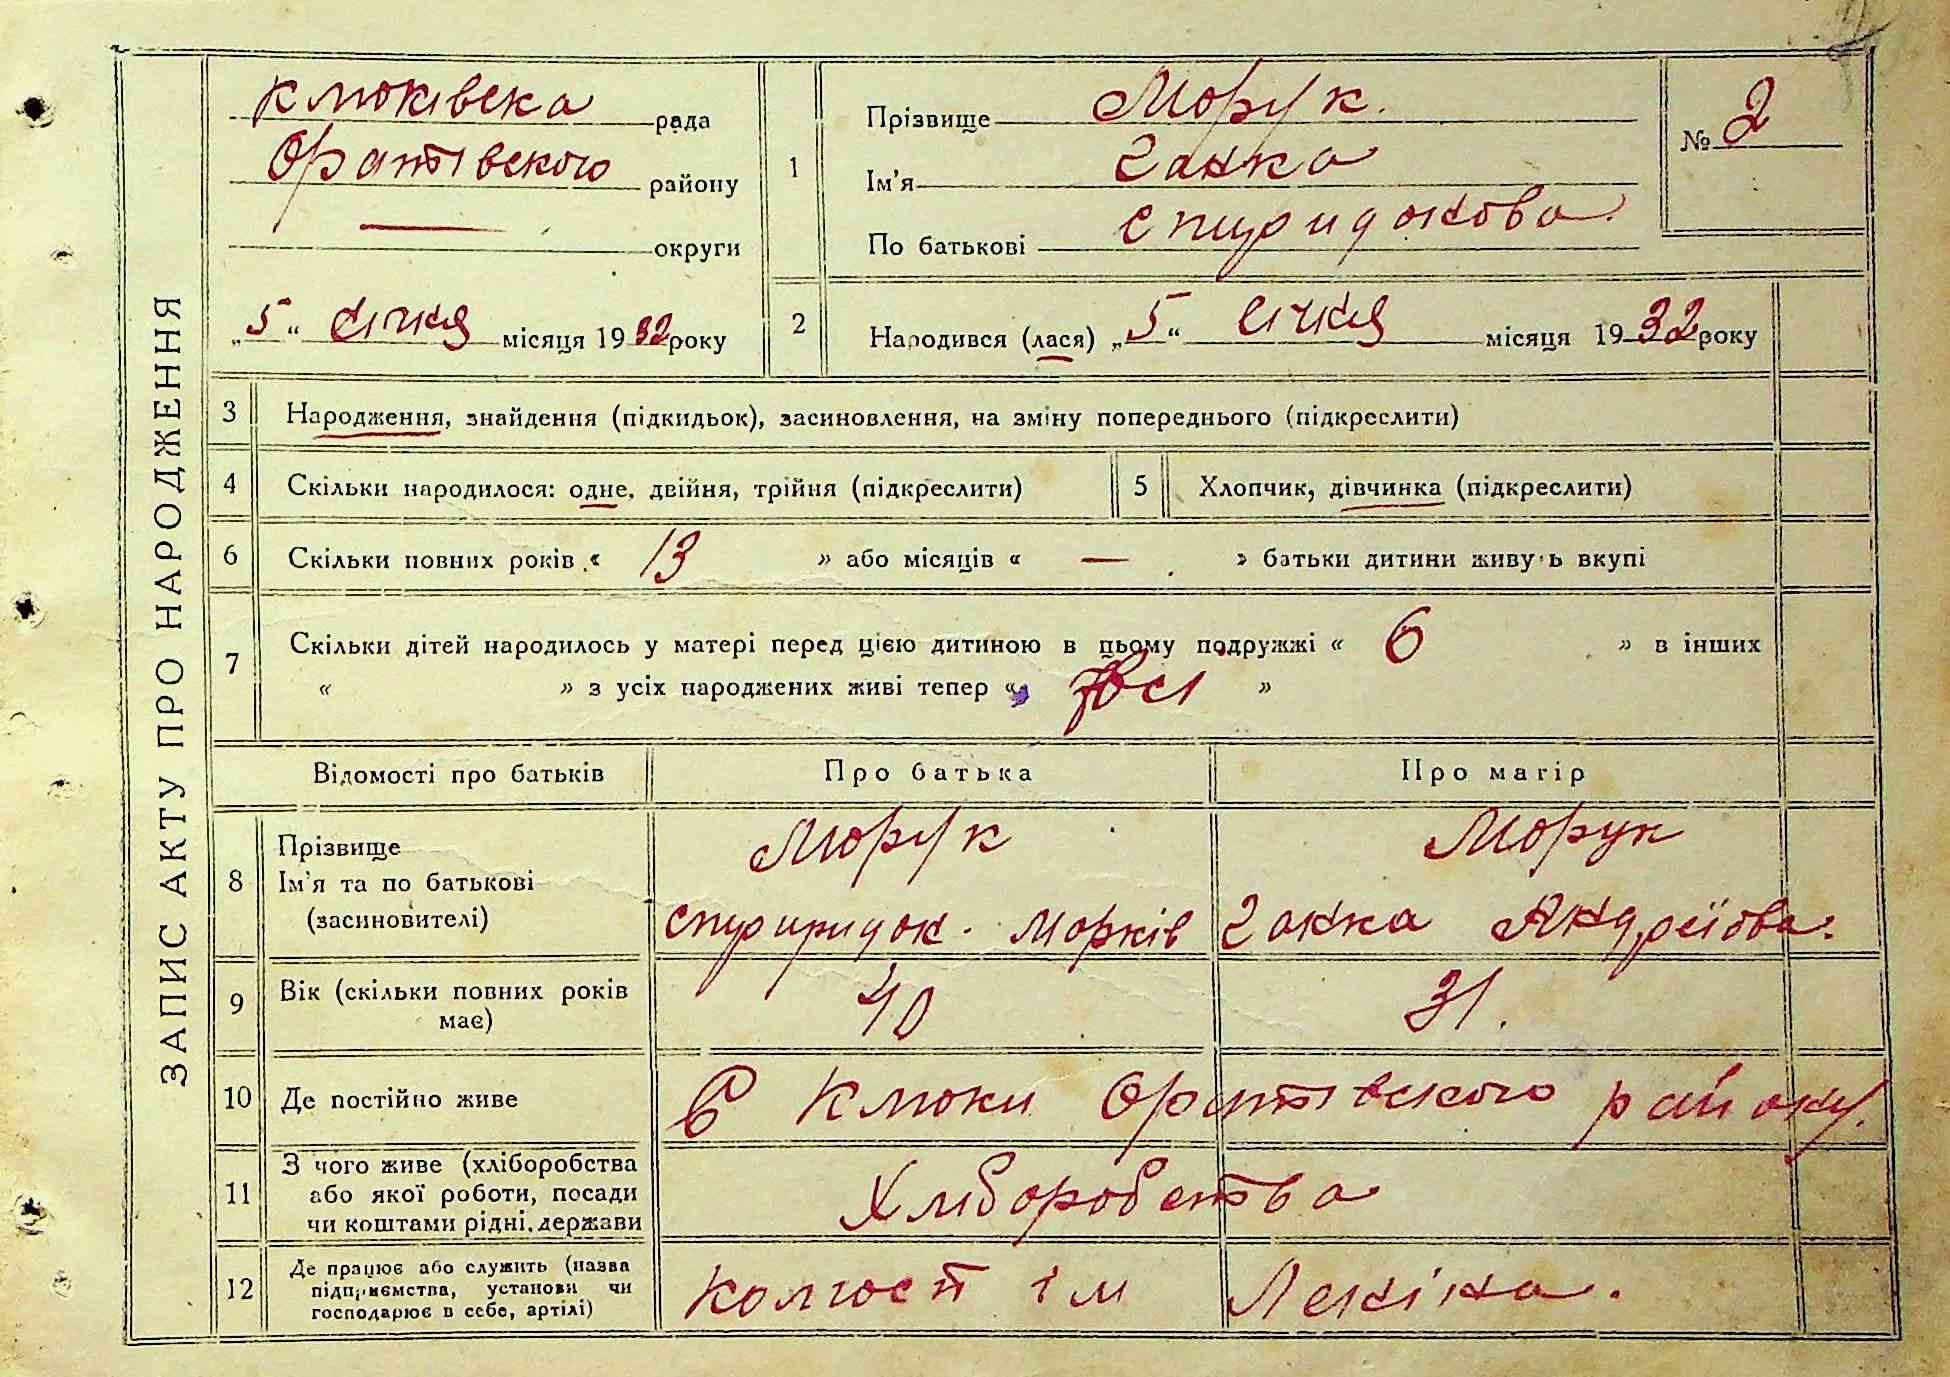 ЗАПИС АКТУ ПРО НАРОДЖЕННЯ
Клюківська рада
Оратівского району
— округи
„5“ січня місяця 1932 року
1
Прізвище Морук.
Ім'я Ганка
По батькові Спиридонова.
№ 2
2
Народився (лася) „5“ січня місяця 1932 року
3 Народження, знайдення (підкидьок), засиновлення, на зміну попереднього (підкреслити)
4 Скільки народилося: одне, двійня, трійня (підкреслити)
5 Хлопчик, дівчинка (підкреслити)
6 Скільки повних років « 13 » або місяців « — » батьки дитини живуть вкупі
7 Скільки дітей народилось у матері перед цією дитиною в цьому подружжі « 6 » в інших
« » з усіх народжених живі тепер « всі »
Відомості про батьків Про батька Про матір
8 Прізвище
Ім'я та по батькові
(засиновителі)
Морук
Морук
Ганка Андреїова.
9 Вік (скільки повних років
має)
40
31.
10 Де постійно живе
В Клюки Оратівского району.
11 З чого живе (хліборобства
або якої роботи, посади
чи коштами рідні, держави
Хліборобства
12 Де працює або служить (назва
підприємства, установи чи
господарює в себе, артілі)
Колгосп ім Леніна.